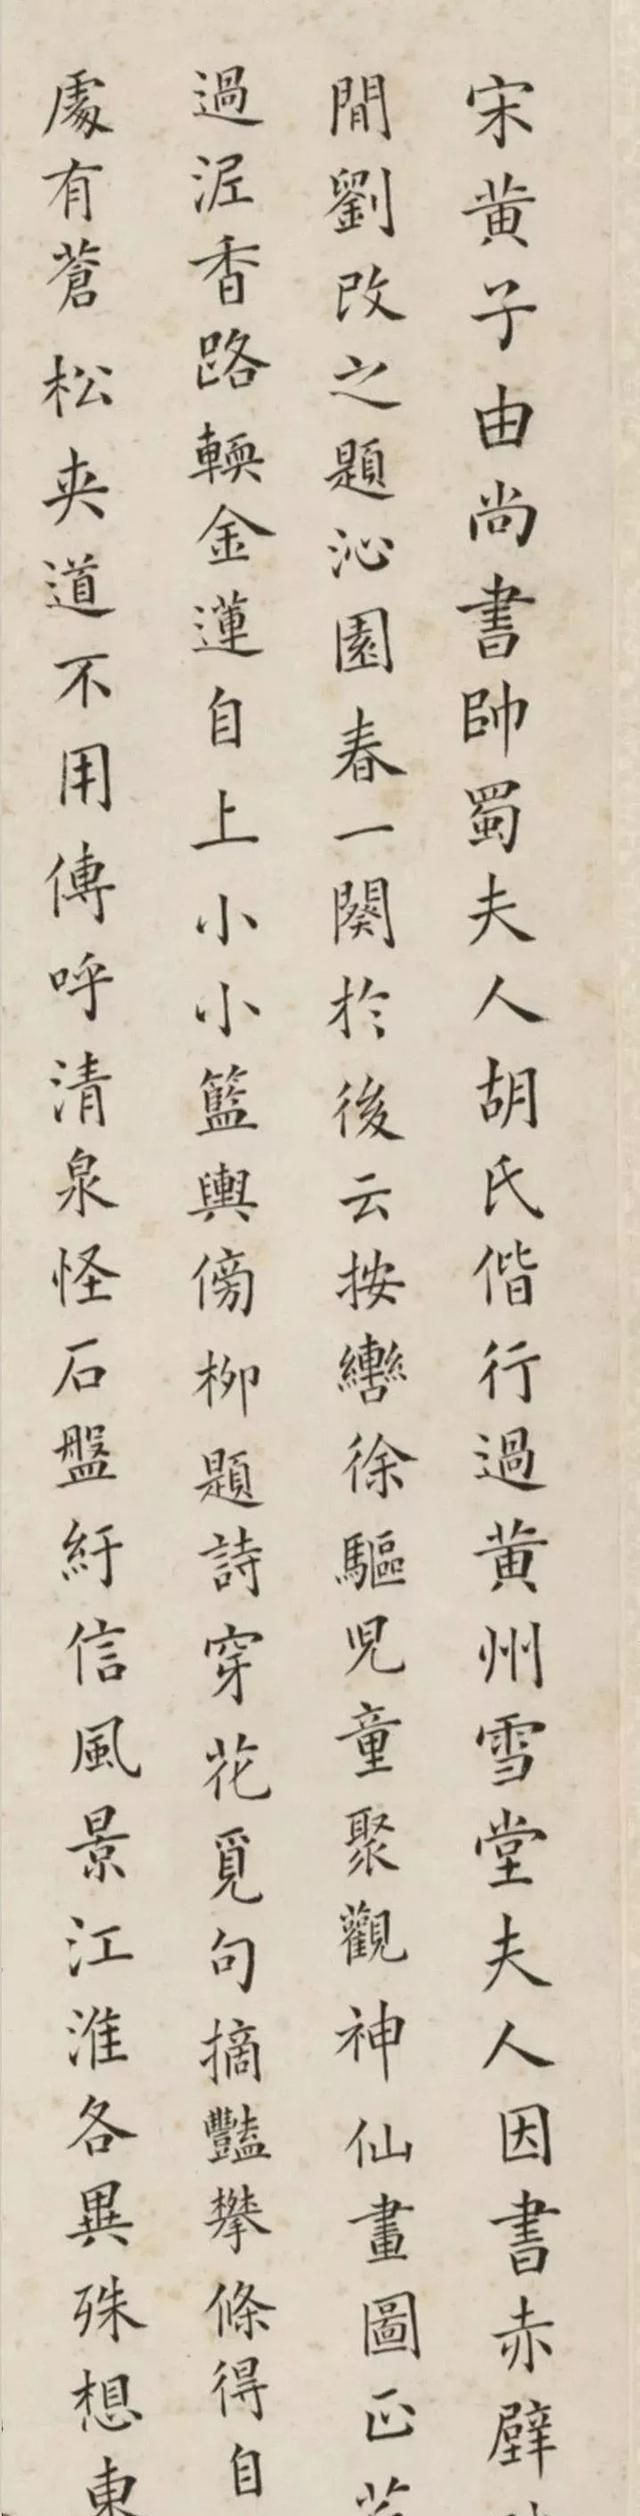 宋黄子由尚書帥蜀夫人胡氏偕行過黄州雪堂夫人因書赤壁
間劉改之題沁園春一闋於後云按轡徐驅児童聚觀神仙畫圖正
過泥香路輭金蓮自上小小籃輿傍柳題詩穿花覓句摘豔攀條得自
處有蒼松夾道不用傳呼清泉怪石盤紆信風景江淮各異殊想東